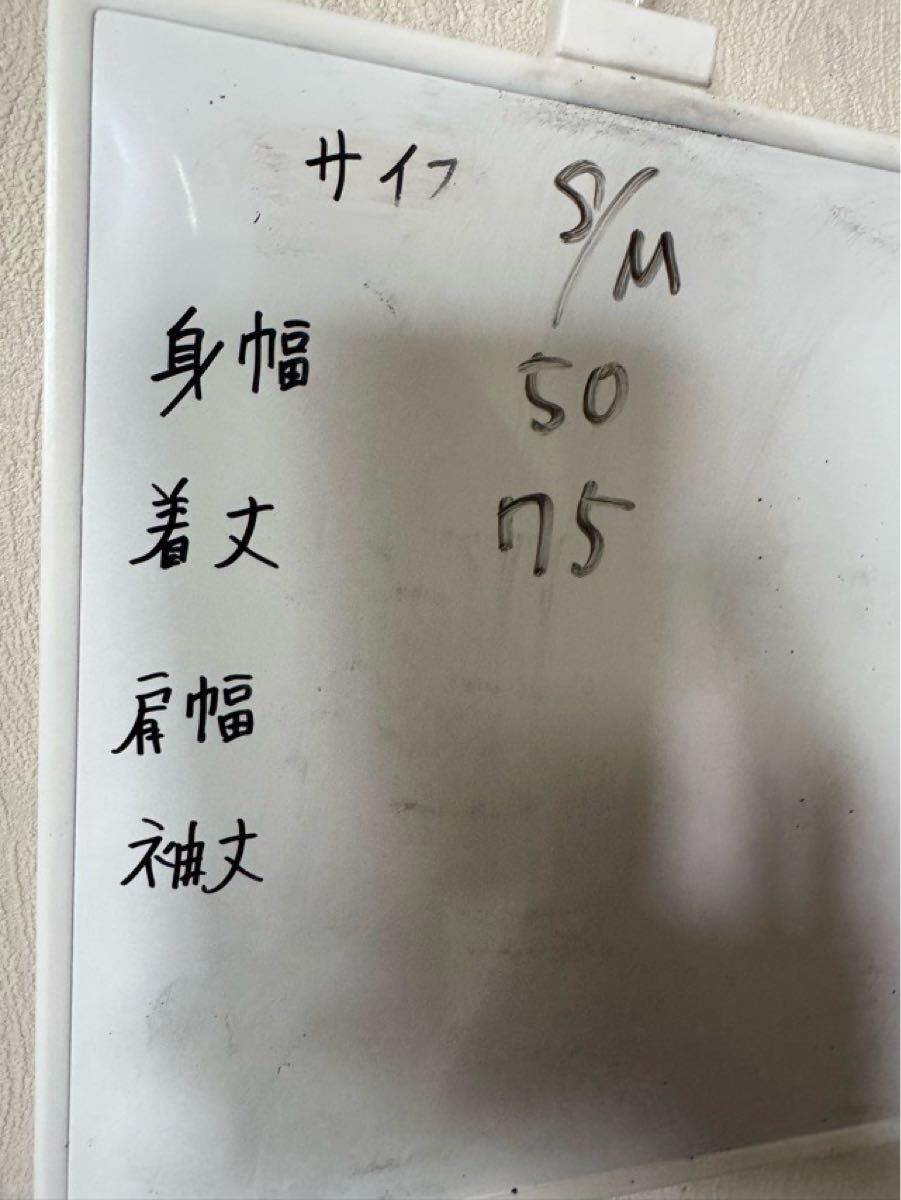 サイフ S/M
身幅 50
着丈 75
肩幅
袖丈